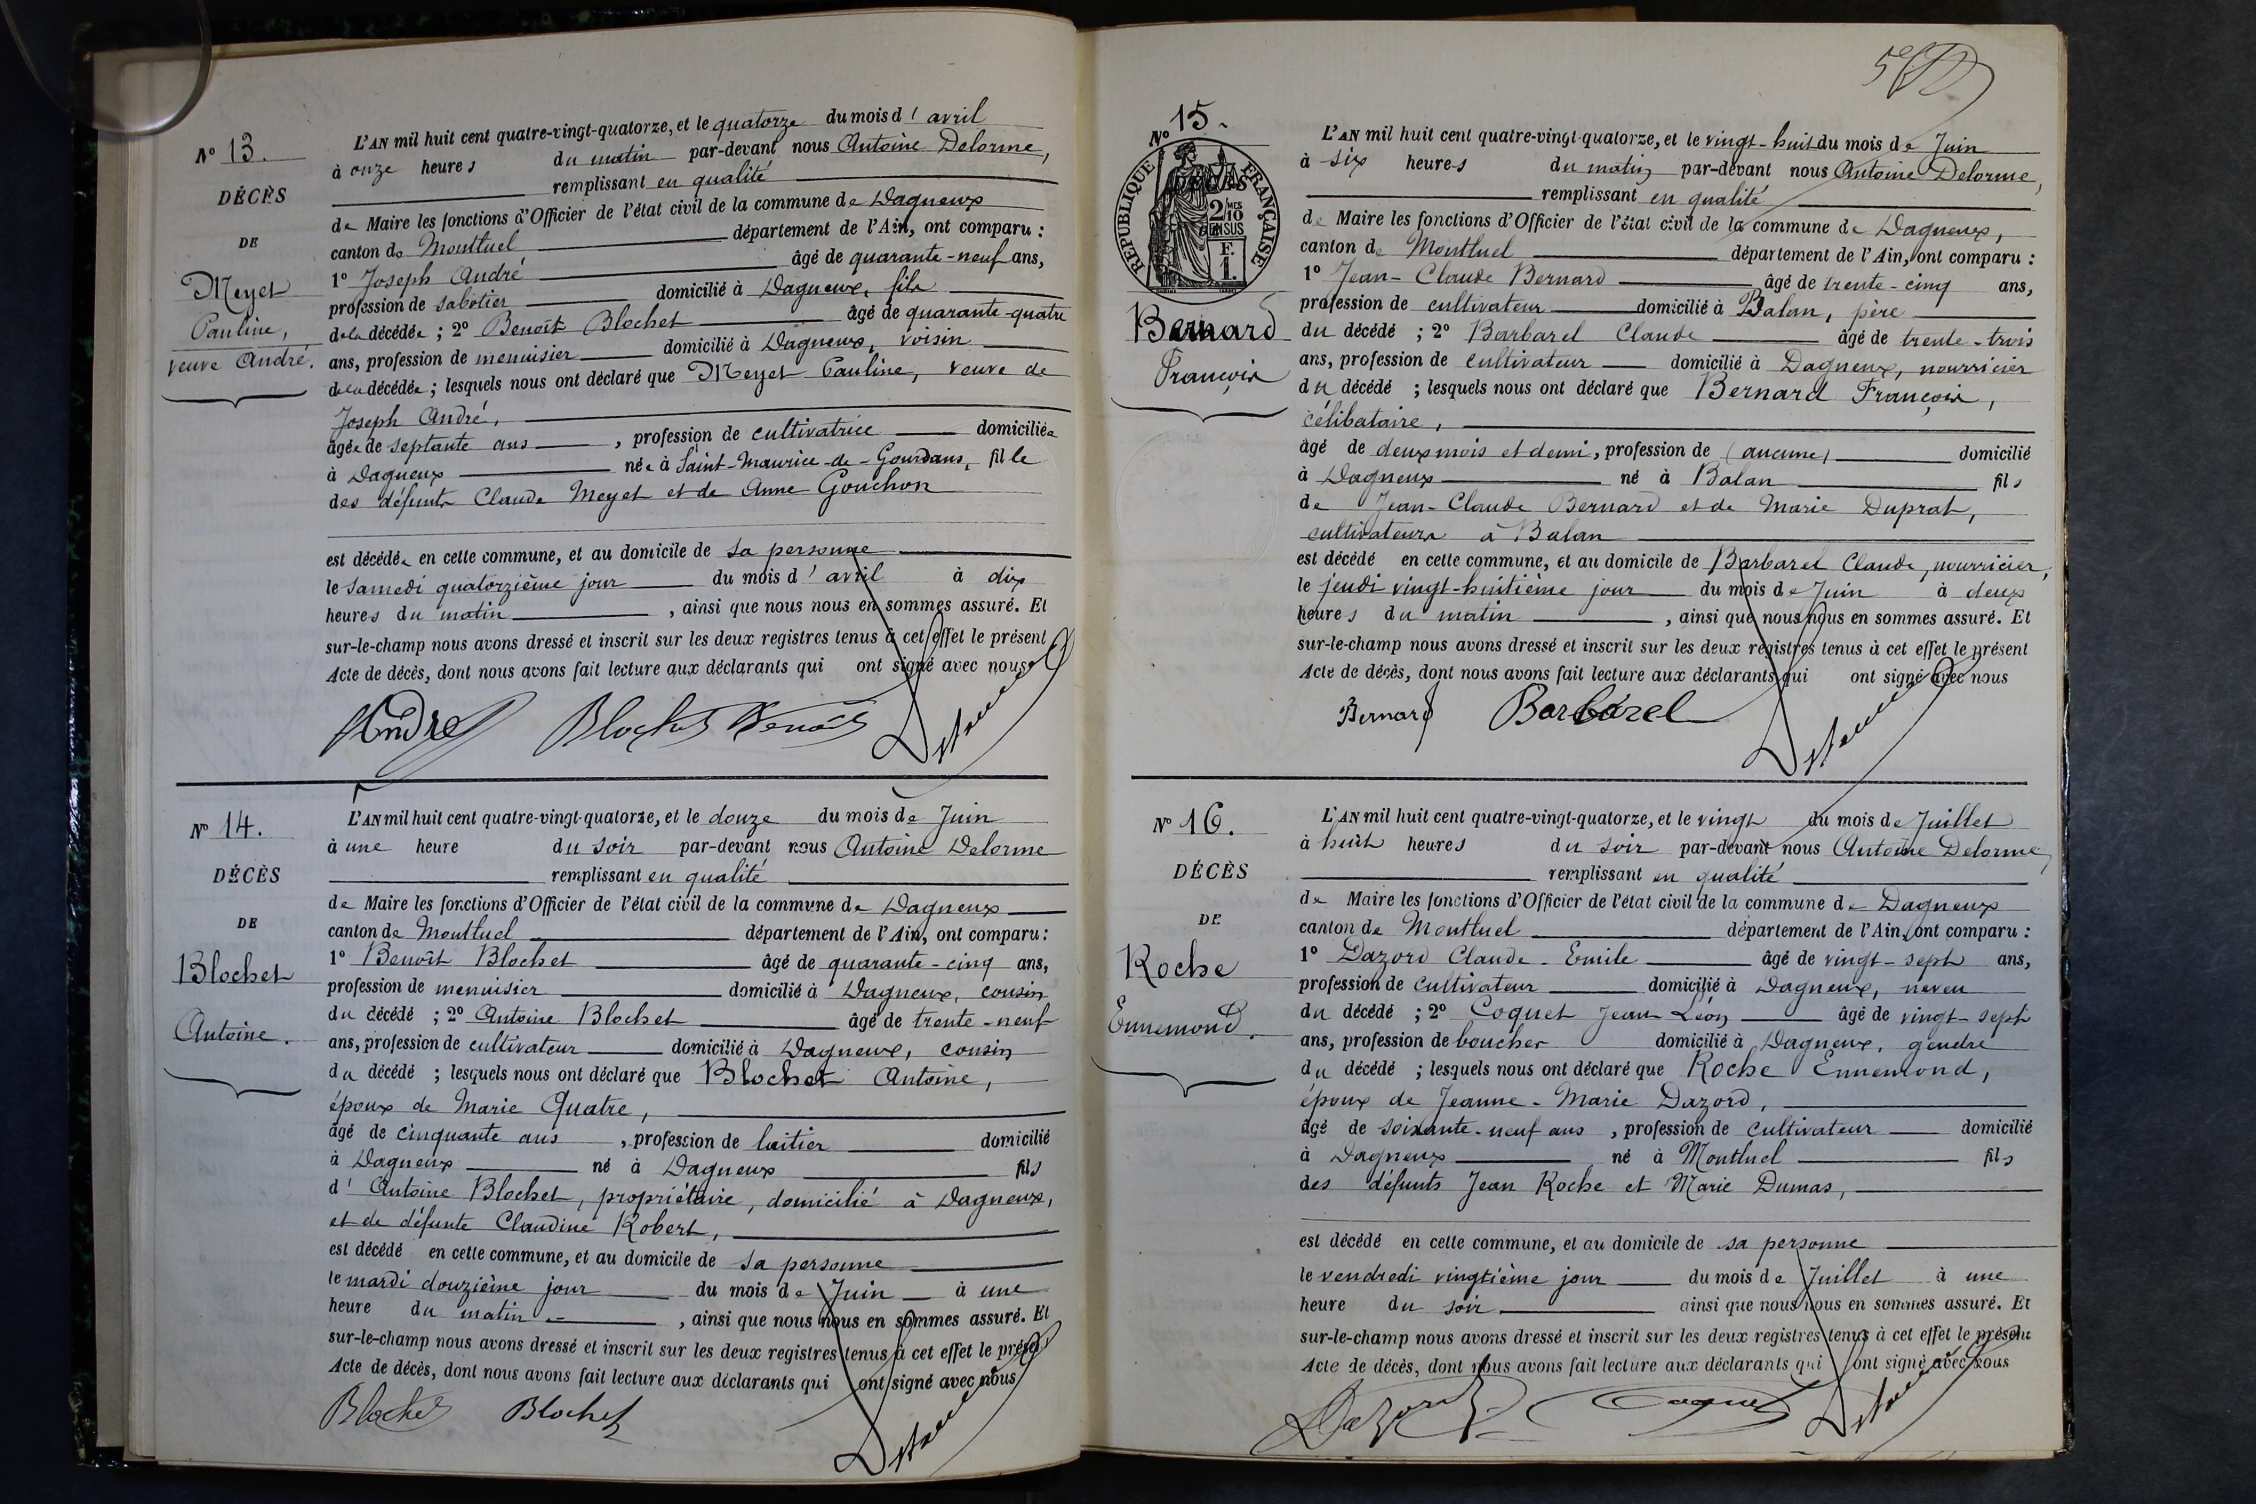 Nº 13.
DÉCÈS
DE
Meyet
Pauline,
veuve André.
L'AN mil huit cent quatre-vingt-quatorze, et le quatorze du mois d'avril
à onze heures du matin par-devant nous Antoine Delorme,
remplissant en qualité
de Maire les fonctions d'Officier de l'état civil de la commune de Dagneux
canton de Montluel département de l'Ain, ont comparu :
1º Joseph André âgé de quarante-neuf ans,
profession de sabotier domicilié à Dagneux, fils
de la décédée ; 2º Benoît Blochet âgé de quarante-quatre
ans, profession de menuisier domicilié à Dagneux, voisin
de la décédée ; lesquels nous ont déclaré que Meyet Pauline, veuve de
Joseph André,
âgée de septante ans, profession de cultivatrice domiciliée
à Dagneux née à Saint-Maurice-de-Gourdans, fille
des défunts Claude Meyet et de Anne Gouchon
est décédée en cette commune, et au domicile de sa personne
le samedi quatorzième jour du mois d'avril à dix
heures du matin, ainsi que nous nous en sommes assuré. Et
sur-le-champ nous avons dressé et inscrit sur les deux registres tenus à cet effet le présent
Acte de décès, dont nous avons fait lecture aux déclarants qui ont signé avec nous
André Blochet Benoît Delorme
Nº 14.
DÉCÈS
DE
Blochet
Antoine.
L'AN mil huit cent quatre-vingt-quatorze, et le douze du mois de Juin
à une heure du soir par-devant nous Antoine Delorme
remplissant en qualité
de Maire les fonctions d'Officier de l'état civil de la commune de Dagneux
canton de Montluel département de l'Ain, ont comparu :
1º Benoît Blochet âgé de quarante-cinq ans,
profession de menuisier domicilié à Dagneux, cousin
du décédé ; 2º Antoine Blochet âgé de trente-neuf
ans, profession de cultivateur domicilié à Dagneux, cousin
du décédé ; lesquels nous ont déclaré que Blochet Antoine,
époux de Marie Quatre,
âgé de cinquante ans, profession de laitier domicilié
à Dagneux né à Dagneux fils
d'Antoine Blochet, propriétaire, domicilié à Dagneux,
et de défunte Claudine Robert,
est décédé en cette commune, et au domicile de sa personne
le mardi douzième jour du mois de Juin à une
heure du matin, ainsi que nous nous en sommes assuré. Et
sur-le-champ nous avons dressé et inscrit sur les deux registres tenus à cet effet le présent
Acte de décès, dont nous avons fait lecture aux déclarants qui ont signé avec nous
Blochet Blochet Delorme
Nº 15.
RÉPUBLIQUE FRANÇAISE
2 MES
10
EN SUS
F.
1.
Bernard
François
L'AN mil huit cent quatre-vingt-quatorze, et le vingt-huit du mois de Juin
à six heures du matin par-devant nous Antoine Delorme,
remplissant en qualité
de Maire les fonctions d'Officier de l'état civil de la commune de Dagneux,
canton de Montluel département de l'Ain, ont comparu :
1º Jean-Claude Bernard âgé de trente-cinq ans,
profession de cultivateur domicilié à Balan, père
du décédé ; 2º Barbarel Claude âgé de trente-trois
ans, profession de cultivateur domicilié à Dagneux, nourricier
du décédé ; lesquels nous ont déclaré que Bernard François,
célibataire,
âgé de deux mois et demi, profession de (aucune) domicilié
à Dagneux né à Balan fils
de Jean-Claude Bernard et de Marie Duprat,
cultivateurs à Balan
est décédé en cette commune, et au domicile de Barbarel Claude, nourricier,
le jeudi vingt-huitième jour du mois de Juin à deux
heures du matin, ainsi que nous nous en sommes assuré. Et
sur-le-champ nous avons dressé et inscrit sur les deux registres tenus à cet effet le présent
Acte de décès, dont nous avons fait lecture aux déclarants qui ont signé avec nous
Bernard Barbarel Delorme
Nº 16.
DÉCÈS
DE
Roche
Ennemond.
L'AN mil huit cent quatre-vingt-quatorze, et le vingt du mois de Juillet
à huit heures du soir par-devant nous Antoine Delorme,
remplissant en qualité
de Maire les fonctions d'Officier de l'état civil de la commune de Dagneux
canton de Montluel département de l'Ain, ont comparu :
1º Dazord Claude-Emile âgé de vingt-sept ans,
profession de cultivateur domicilié à Dagneux, neveu
du décédé ; 2º Coquet Jean Léon âgé de vingt-sept
ans, profession de boucher domicilié à Dagneux, gendre
du décédé ; lesquels nous ont déclaré que Roche Ennemond,
époux de Jeanne-Marie Dazord,
âgé de soixante-neuf ans, profession de cultivateur domicilié
à Dagneux né à Montluel fils
des défunts Jean Roche et Marie Dumas,
est décédé en cette commune, et au domicile de sa personne
le vendredi vingtième jour du mois de Juillet à une
heure du soir ainsi que nous nous en sommes assuré. Et
sur-le-champ nous avons dressé et inscrit sur les deux registres tenus à cet effet le présent
Acte de décès, dont nous avons fait lecture aux déclarants qui ont signé avec nous
Dazord Coquet Delorme